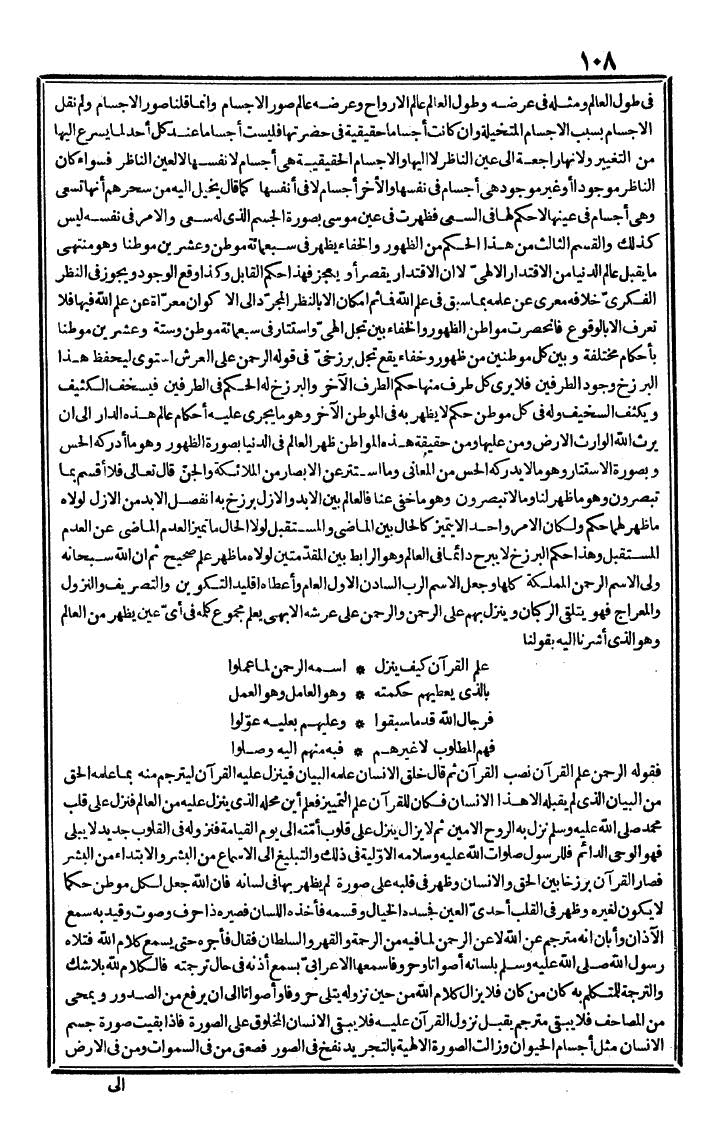 ١٠٨
فى طول العالم ومثله فى عرضه وطول العالم عالم الارواح وعرضه عالم صور الاجسام وانما قلنا صور الاجسام ولم نقل
الاجسام بسبب الاجسام المتخيلة وان كانت أجساما حقيقية فى حضرتها فليست أجساما عند كل أحد لما يسرع اليها
من التغيير ولانها راجعة الى عين الناظر لا اليها والاجسام الحقيقية هى أجسام لانفسها لا لعين الناظر فسواء كان
الناظر موجودا أو غير موجود هى أجسام فى نفسها والأخر أجسام لا فى أنفسها كما قال يخيل اليه من سحرهم أنها تسعى
وهى أجسام فى عينها لا حكم لها فى السعى فظهرت فى عين موسى بصورة الجسم الذى له سعى والامر فى نفسه ليس
كذلك والقسم الثالث من هذا الحكم من الظهور والخفاء يظهر فى سبعمائة موطن وعشرين موطنا وهو منتهى
ما يقبل عالم الدنيا من الاقتدار الالهىّ لا ان الاقتدار يقصر أو يعجز فهذا حكم القابل وكذا وقع الوجود ويجوز فى النظر
الفكرىّ خلافه معرى عن علمه بما سبق فى علم الله فما ثم امكان الا بالنظر المجرّد الى الاكوان معرّاة عن علم الله فيها فلا
تعرف الا بالوقوع فانحصرت مواطن الظهور والخفاء بين تجل الهىّ واستتار فى سبعمائة موطن وستة وعشرين موطنا
بأحكام مختلفة وبين كل موطنين من ظهور وخفاء يقع تجل برزخىّ فى قوله الرحمن على العرش استوى ليحفظ هذا
البرزخ وجود الطرفين فلا يرى كل طرف منها حكم الطرف الآخر والبرزخ له الحكم فى الطرفين فيسخف الكثيف
ويكثف السخيف وله فى كل موطن حكم لا يظهر به فى الموطن الآخر وهو ما يجرى عليه أحكام عالم هذه الدار الى ان
يرث الله الوارث الارض ومن عليها ومن حقيقة هذه المواطن ظهر العالم فى الدنيا بصورة الظهور وهو ما أدركه الحس
وبصورة الاستتار وهو ما لا يدركه الحس من المعانى وما استتر عن الابصار من الملائكة والجن قال تعالى فلا أقسم بما
تبصرون وهو ما ظهر لنا وما لا تبصرون وهو ما خفى عنا فالعالم بين الابد والازل برزخ به انفصل الابد من الازل لولاه
ما ظهر لهما حكم ولكان الامر واحد الا يتميز كالحال بين الماضى والمستقبل لولا الحال ما تميز العدم الماضى عن العدم
المستقبل وهذا حكم البرزخ لا يبرح دائما فى العالم وهو الرابط بين المقدّمتين لولاه ما ظهر علم صحيح ثم ان الله سبحانه
ولى الاسم الرحمن المملكة كلها وجعل الاسم الرب السادن الاول العام وأعطاه اقليد التكوين والتصريف والنزول
والمعراج فهو يتلقى الركبان وينزل بهم على الرحمن والرحمن على عرشه الابهى يعلم مجموع كله فى أىّ عين يظهر من العالم
وهو الذى أشرنا اليه بقولنا
علم القرآن كيف ينزل * اسمه الرحمن لما عملوا
بالذى يعطيهم حكمته * وهو العامل وهو العمل
فرجال الله قدما سبقوا * وعليهم بعليه عوّلوا
فهم المطلوب لا غيرهم * فبه منهم اليه وصلوا
فقوله الرحمن علم القرآن نصب القرآن ثم قال خلق الانسان علمه البيان فينزل عليه القرآن ليترجم منه بما علمه الحق
من البيان الذى لم يقبله الا هذا الانسان فكان للقرآن علم التمييز فعلم أين محله الذى ينزل عليه من العالم فنزل على قلب
محمد صلى الله عليه وسلم نزل به الروح الامين ثم لا يزال ينزل على قلوب أمّته الى يوم القيامة فنزوله فى القلوب جديد لا يبلى
فهو الوحى الدائم فللرسول صلوات الله عليه وسلامه الاوّلية فى ذلك والتبليغ الى الاسماع من البشر والابتداء من البشر
فصار القرآن برزخا بين الحق والانسان وظهر فى قلبه على صورة لم يظهر بها فى لسانه فان الله جعل لكل موطن حكما
لا يكون لغيره وظهر فى القلب أحدىّ العين فجسده الخيال وقسمه فأخذه اللسان فصيره ذا حرف وصوت وقيد به سمع
الآذان وأبان انه مترجم عن الله لا عن الرحمن لما فيه من الرحمة والقهر والسلطان فقال فأجره حتى يسمع كلام الله فتلاه
رسول الله صلى الله عليه وسلم بلسانه أصواتا وحروفا سمعها الاعرابىّ بسمع أذنه فى حال ترجمته فالكلام لله بلا شك
والترجمة للمتكلم به كان من كان فلا يزال كلام الله من حين نزوله يتلى حروفا وأصواتا الى ان يرفع من الصدور ويمحى
من المصاحف فلا يبقى مترجم يقبل نزول القرآن عليه فلا يبقى الانسان المخلوق على الصورة فاذا بقيت صورة جسم
الانسان مثل أجسام الحيوان وزالت الصورة الالهية بالتجريد نفخ فى الصور فصعق من فى السموات ومن فى الارض
الى